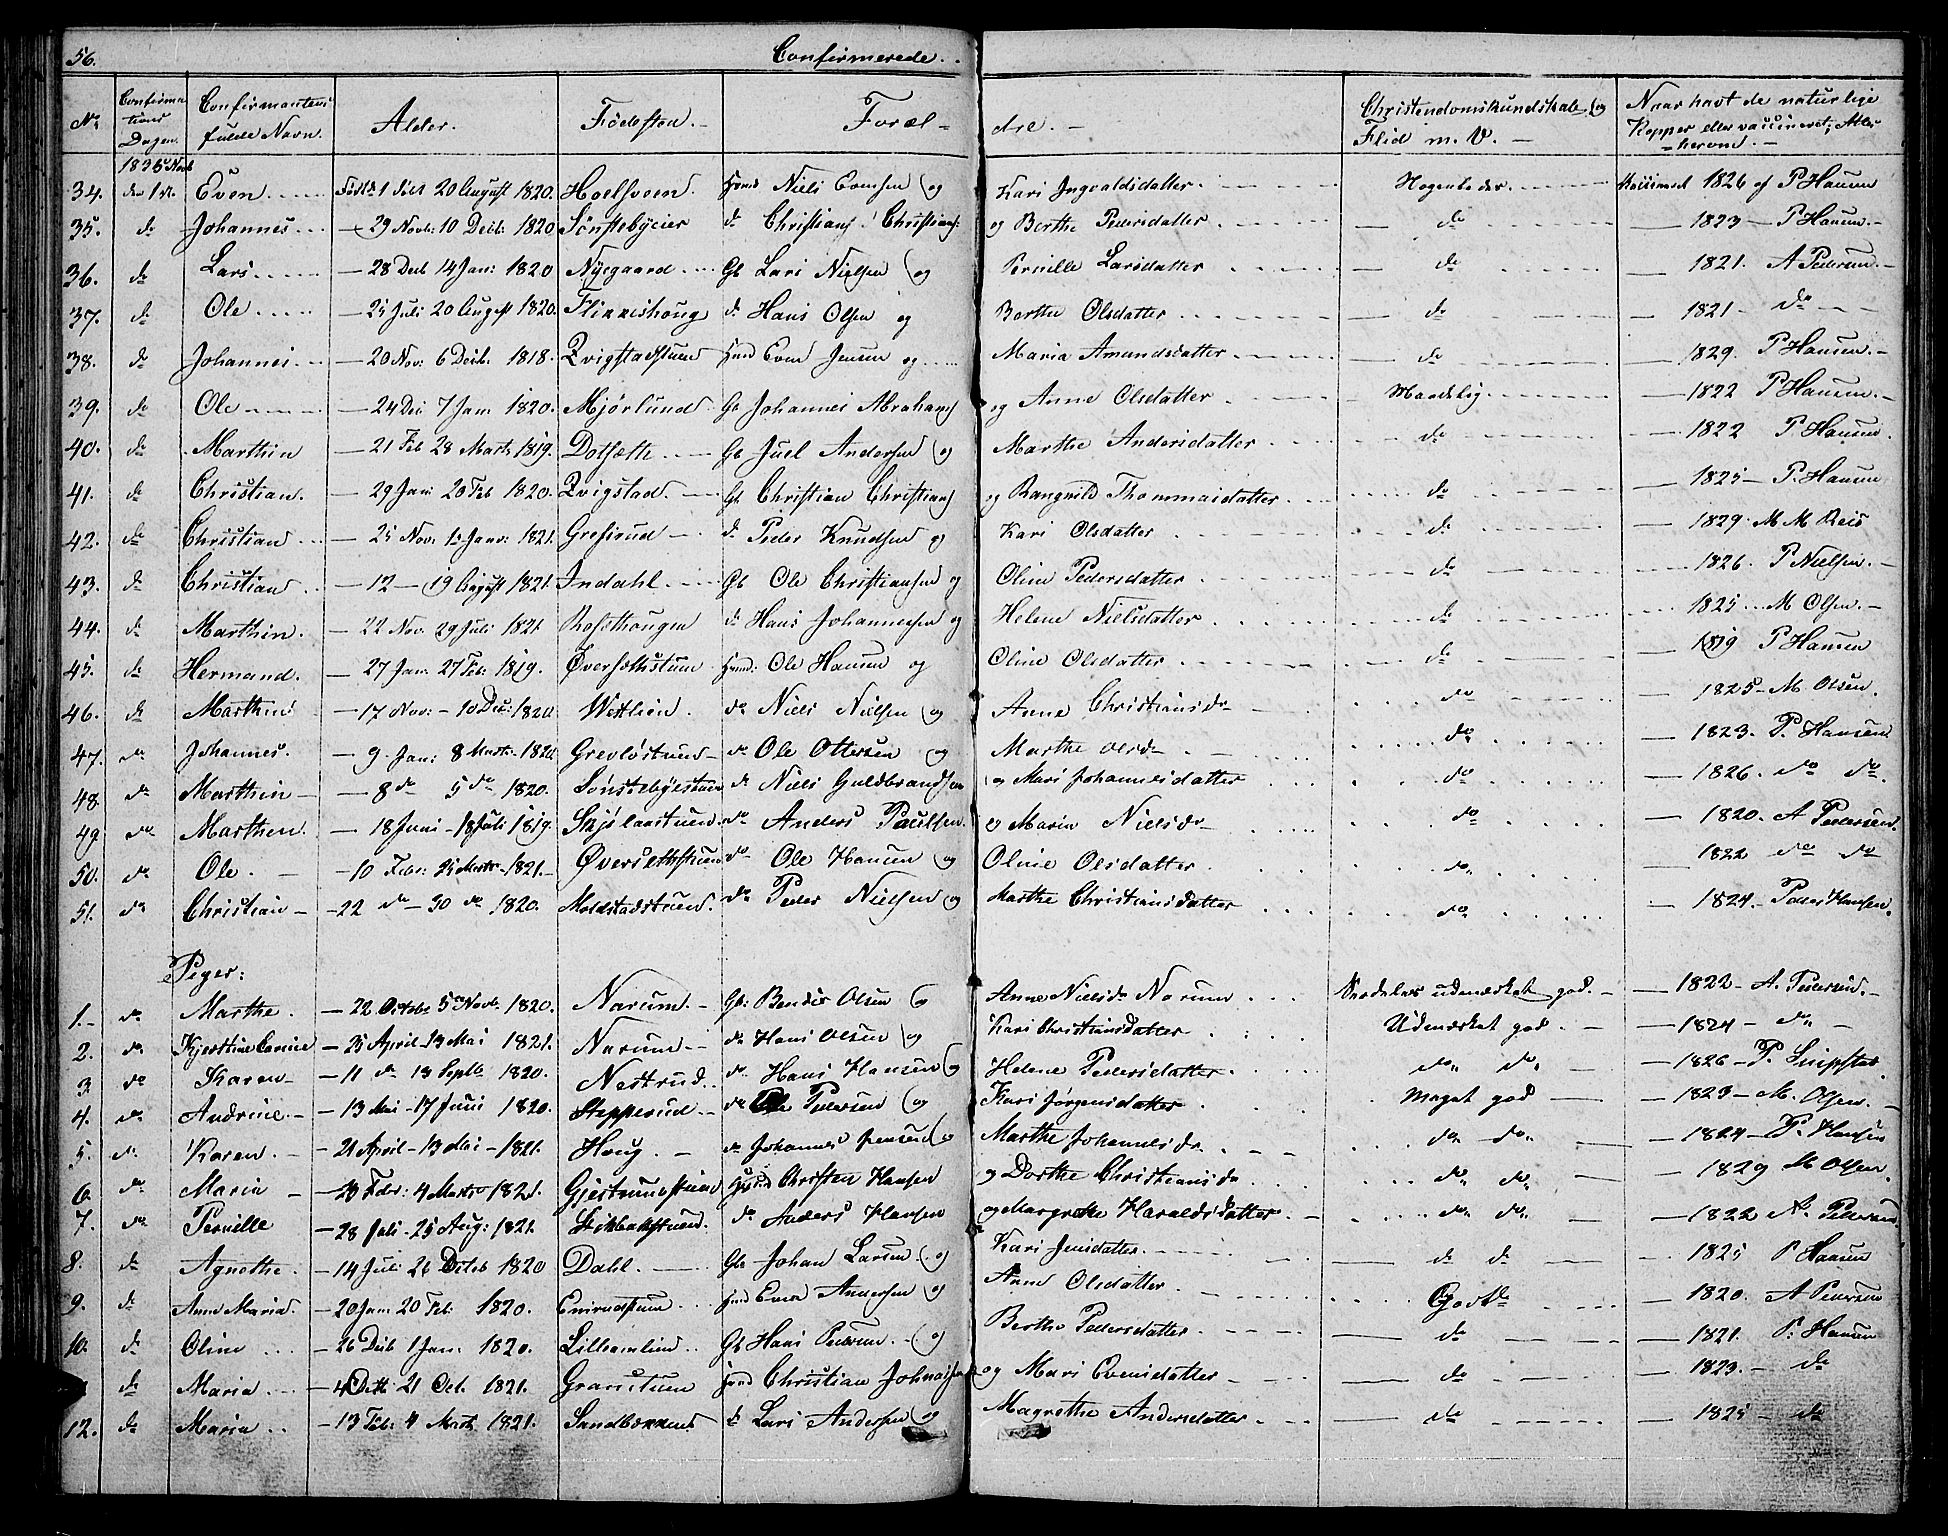 56. Confirmerede.
No Confirmations Dagen. Confirmantens fulde Navn. Alder. Födested. Forældre. Christendomskundskab og Flid m. V. Naar havt de naturlige Kopper eller vaccineret; Attest herom.
34. Even 20 August 1820. Hoelsveen Niels Evensen og Kari Ingvaldsdatter 1826 af P Hansen
35. do Johannes 29 Novb: 10 Decb: 1820 Sønstebyeier do Christians Christians: og Berthe Pedersdatter do 1823 — P Hansen.
36. do Lars 28 Decb 14 Jan: 1820 Nyegaard Gb Lars Nielsen og Pernille Larsdatter do 1821. A Pedersen.
37. do Ole 25 Juli 20 August 1820. do Hans Olsen og Berthe Olsdatter do 1821 do
38. do Johannes 20 Nov: 6 Decb: 1818. Qvigstadstuen Even Jensen og Maria Amundsdatter do 1829. P Hansen.
39. do Ole 24 Dec 7 Jan 1820. Mjørlund Gb Johannes Abrahams og Anne Olsdatter Maadelig 1822 P Hansen.
40. do Marthin 21 Feb 28 Marts 1819. Gb Juel Andersen og Marthe Andersdatter do 1822 P Hansen.
41. do Christian. 29 Jan: 20 Feb 1820. Qvigstad. Gb Christian Christians og Rangnild Thommasdatter do 1825 — P. Hansen
42. do Christian 25 Nov: 15 Janv: 1821. Grefsrud do Peder Knudsen og Kari Olsdatter do 1829. M M Reis
43. do Christian 12 — 19 August 1821. Indahl. Gb Ole Christiansen og Oline Pedersdatter do 1826. P Nielsen.
44. do Marthin. 22 Nov. 29 Juli 1821 do Hans Johannessen og Helene Nielsdatter do 1825 M Olsen.
45. do Hermand. 27 Jan: 27 Feb: 1819. Ole Hansen og Oline Olsdatter do 1819 P Hansen
46. do Marthin 17 Nov: — 10 Dec: 1820 Westlien. do Niels Nielsen og Anne Christiansdr do 1825 — M. Olsen.
47. do Johannes. 9. Jan: 8 Marts: 1820. do Ole Ottersen og Marthe Olsdr do 1823. P. Hansen
48. do Marthin 8 do 5 do 1820. Sønstebyestuen do Niels Guldbrandsen og Mari Johannesdatter do 1826. do do
49. do Marthen. 18 Juni — 18 Juli 1819. do Anders Paulsen. og Maria Nielsdr do 1820. A Pedersen.
50. do Ole. 10 Febr: 25 Marts — 1821. do Ole Hansen og Oline Olsdatter do 1822 do do
51. do Christian 22 do — 30 do 1820. do Peder Nielsen og Marthe Christiansdatter do 1824. — Peder Hansen.
Piger:
1. do Marthe. 22 Octobr 5 Novb. 1820. Narum. Gb: Bendix Olsen og Anne Nielsdr Narum udmærket god. 1822 — A. Pedersen.
2. do Kjerstine 25 April — 13 Mai 1821. Narum do Hans Olsen og Kari Christiansdatter Udmærket god. 1824 — do
3 do Karen 11 do 13 Septb 1820. Nestrud do Hans Hansen og Helene Pedersdatter do do 1826 — P.
4. do Andrine. 13 Mai — 17 Juni 1820. Stepperud do Ole Pedersen og Kari Jørgensdatter Meget god 1823 — M. Olsen.
5. do Karen. 21 April — 13 Mai — 1821. Houg. do Johannes Jensen og Marthe Johannesdr do do 1824 — P. Hansen
6. do Maria 23 Febr: 4 Marts 1821. Christen Hansen og Dorthe Christiansdr do do 1829 M Olsen.
7. do Pernille 28 Juli — 25 Aug: 1821 do Anders Hansen og Margrethe Haraldsdatter do do 1822 A. Pedersen
8. do Agnethe. 14 Juli 1820 Dahl. Gb Johan Larsen og Kari Jensdatter do do 1825 P Hansen
9. do Anne Maria. 20 Jan: 20 Feb. 1820. Even Andersen og Anne Olsdatter Godt 1820. A Pedersen
10. do Oline 26 Decb 1 Jan: 1820. Gb Hans Pedersen og Berthe Pedersdatter do 1821. P: Hansen
do Maria 21 Oct. 1821. Christian og Mari Evensdatter do 1823. do
12. do Maria 13 Feb: 4 Marts 1821. do Lars Andersen og Magrethe Andersdatter do 1825 — do